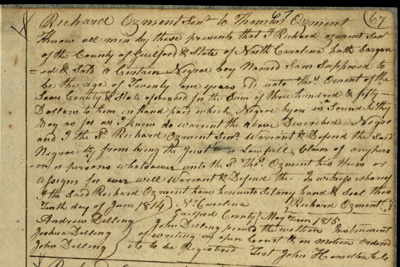 Richard Ozment Senr to Thomas Ozment
67
Know all men by these presents that I Richard Ozment Senr
of the County of Guilford & State of North Carolina hath bargan
ed & Sold a Certain Negroe boy Named Sam Supposed to
be the age of Twenty one years
County & State aforesaid for the Sum of three hundred & fifty
Dollars to me in hand paid which Negroe boy is Sound
as far as I know do warrant the above Described Negroe
and I the Sd Richard Ozment Senr Warrant & Defend the Said
Negroe from being the Just Lawfull Claim of any pers
on or persons whatsoever unto the Sd Thos Ozment his Heirs or
assigns for ever will Warrant & Defend the
I the Said Richard Ozment have hereunto Set my hand & Seal this
Tenth day of June 1814 N. Carolina Richard Ozment
Andrew Delling Guilford County May Term 1815
Joshua Delling John Delling proved the within Instrument
John Delling of writing in open Court & on motion Ordered
to be Registered Test John Hamilton